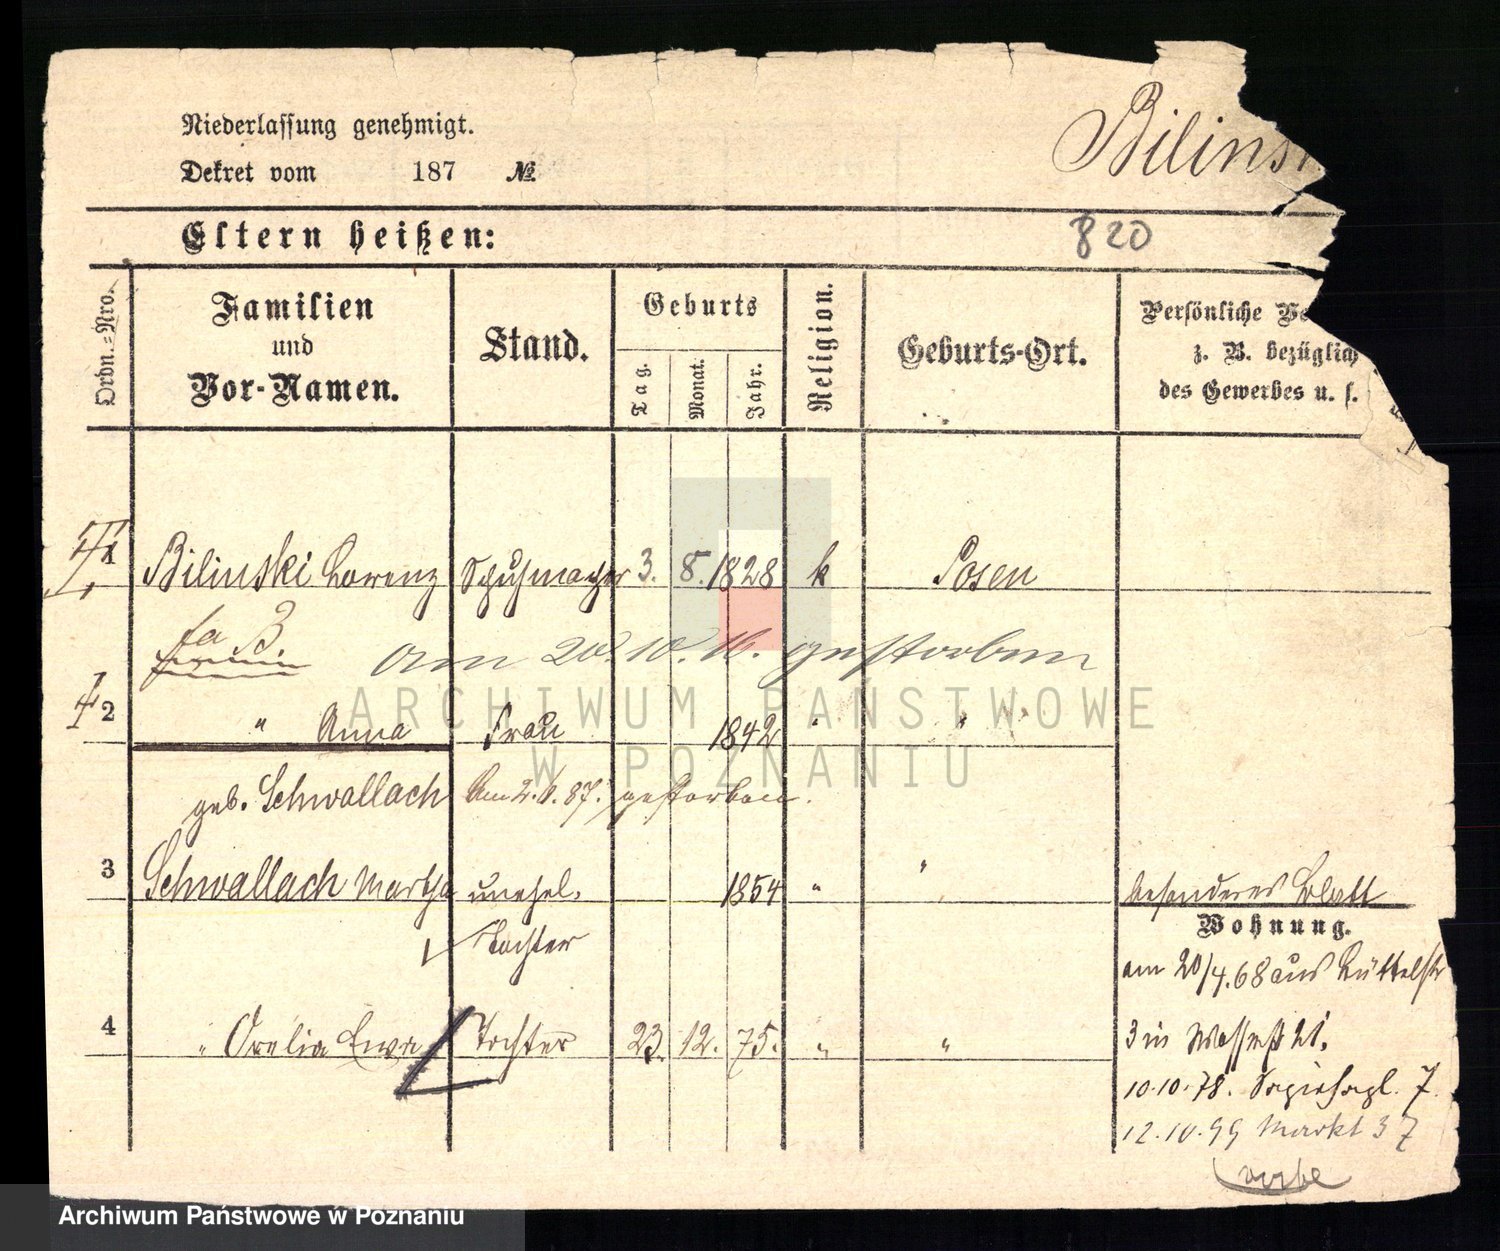 Niederlassung genehmigt.
Dekret vom 187 №
Bilins
B 20
Eltern heißen:
Ordn.-Nro.
Familien und Vor-Namen.
Stand.
Geburts
Tag.
Monat.
Jahr.
Religion.
Geburts-Ort.
Persönliche Ve
z. B. bezüglich
des Gewerbes u. s.
1 Bilinski Lorenz Schuhmacher 3. 8. 1828 k Posen
am 20.10.16. gestorben
2 " Anna Frau 1842 " "
geb. Schwallach Am 2. 87. gestorben.
3 Schwallach Martha unehel. 1854 " " besonderes Blatt
Tochter
Wohnung.
am 20/4.68 aus Büttelstr
4 " Tochter 23. 12. 75. " "
3 in Wasserst 21.
10.10.78. 7.
12.10.99 Markt 37
ARCHIWUM PAŃSTWOWE
W POZNANIU
Archiwum Państwowe w Poznaniu